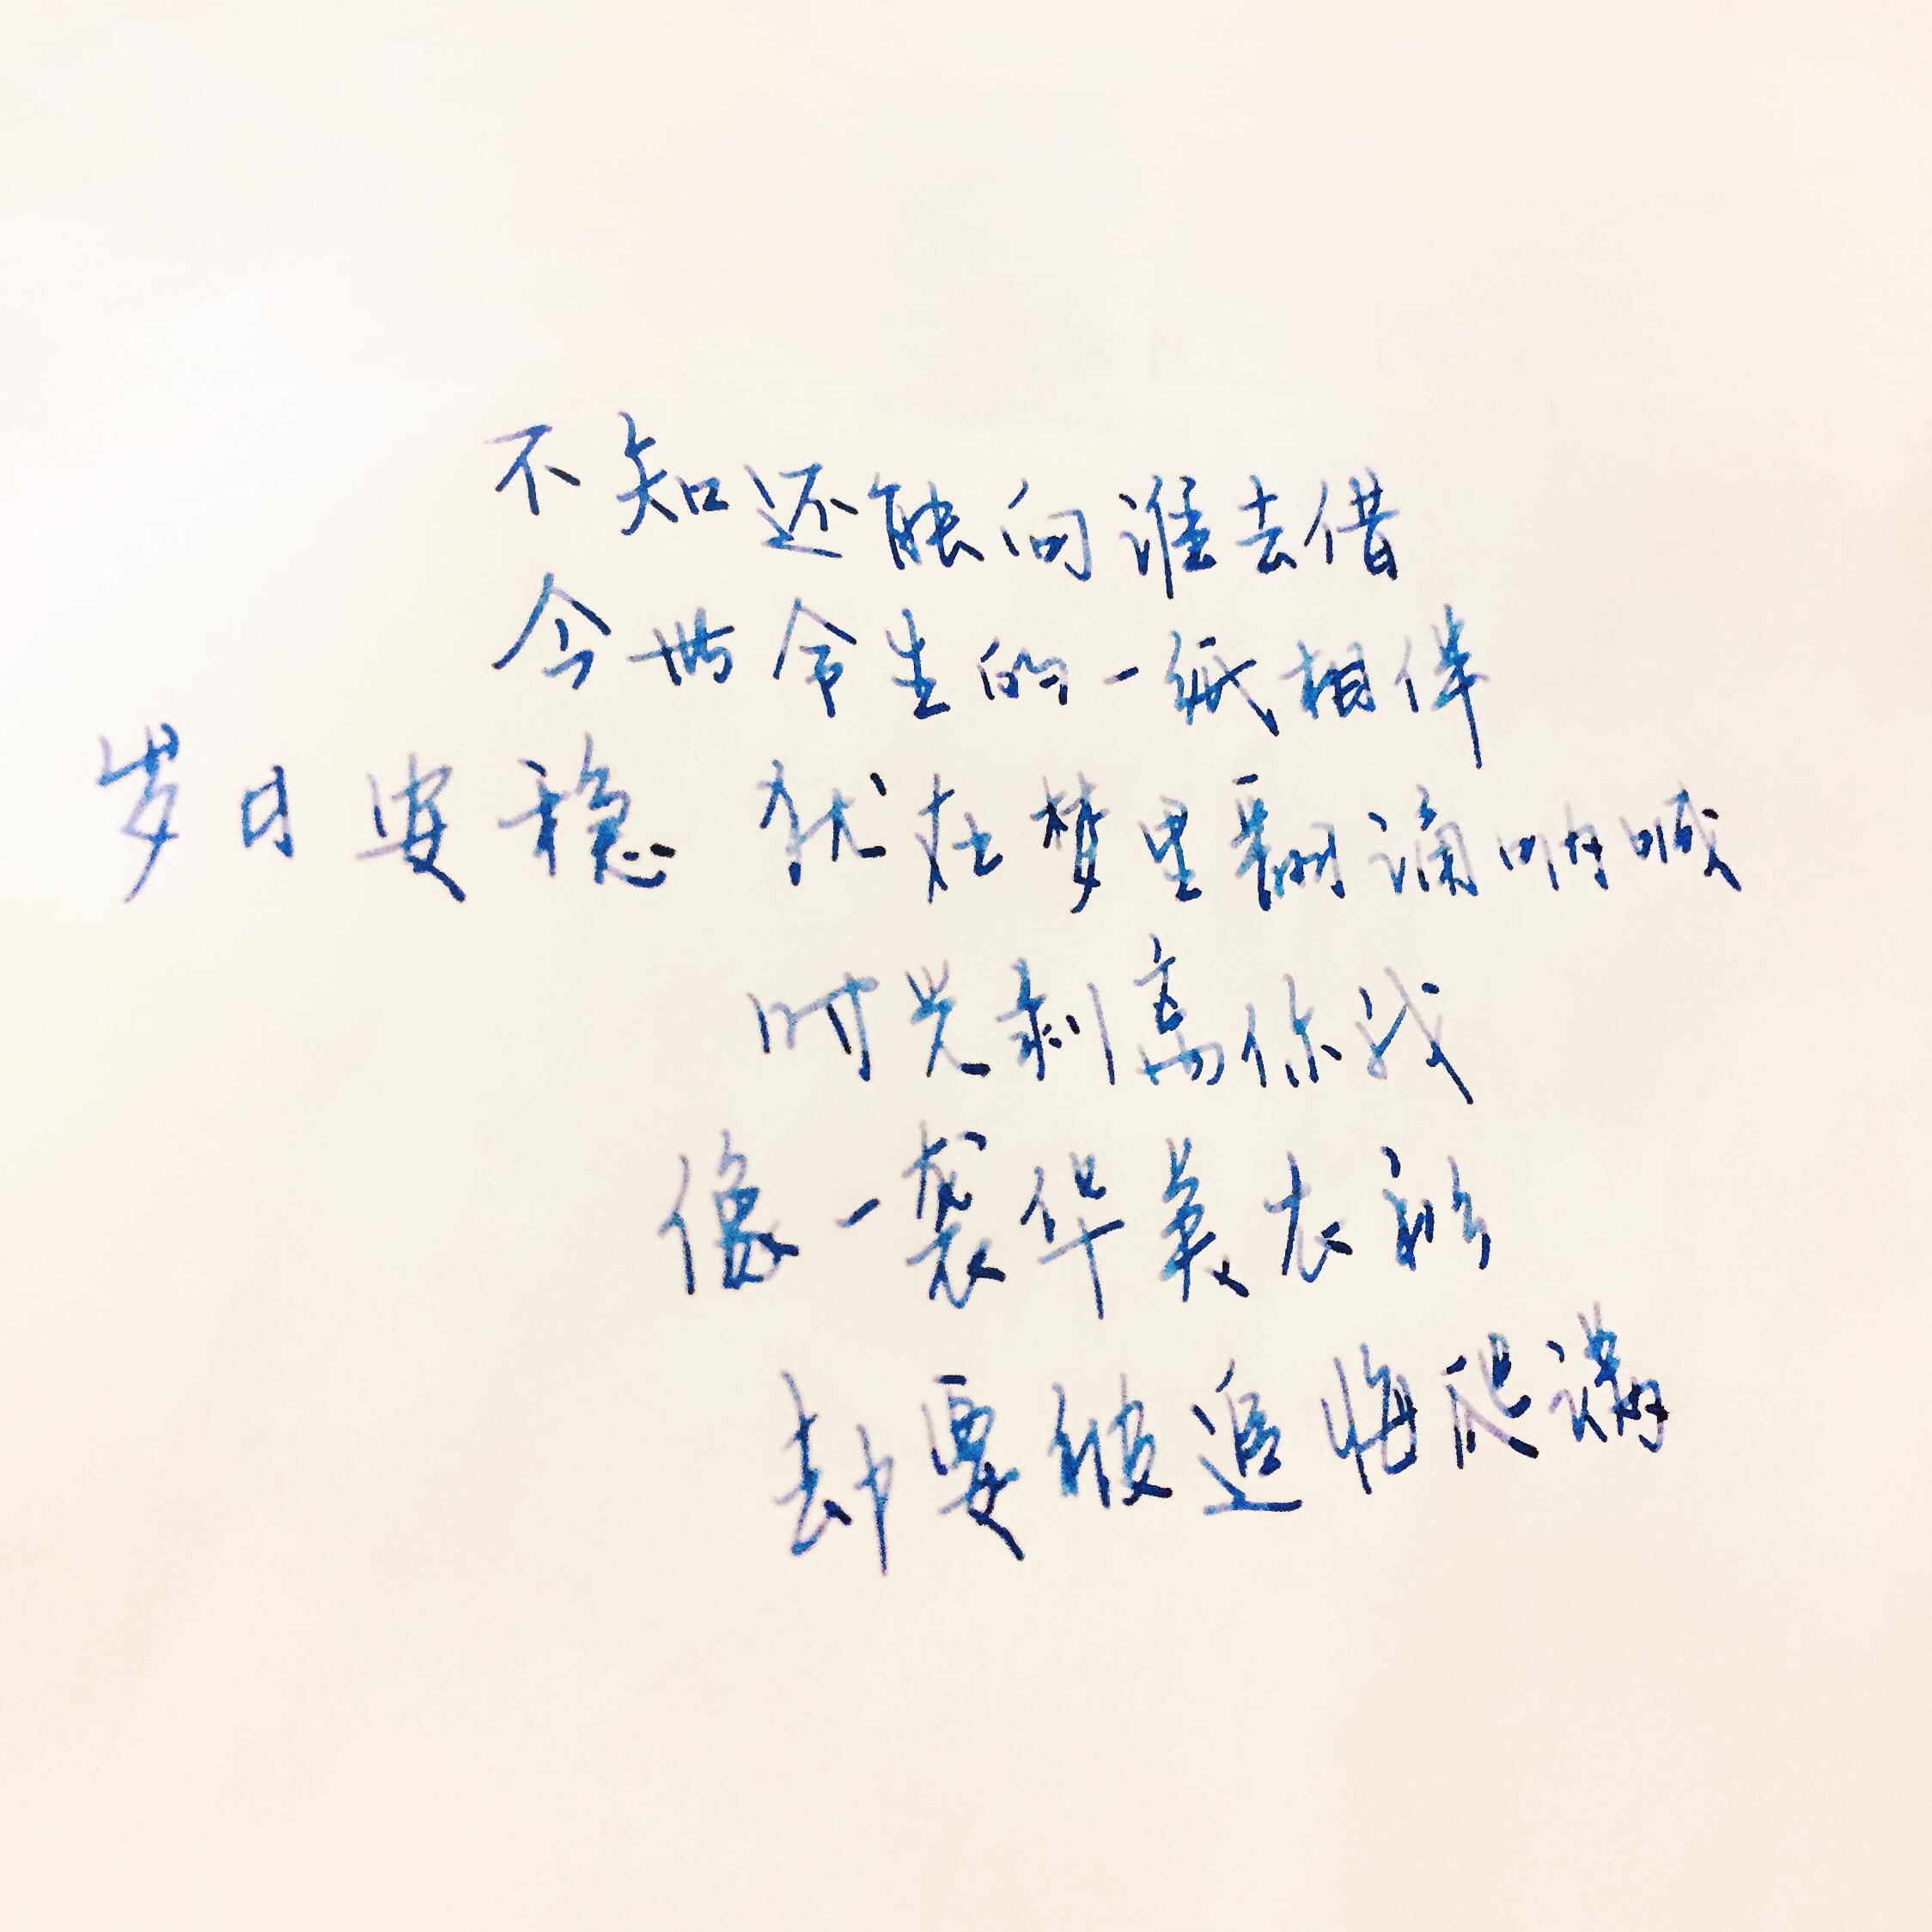 不知还能向谁去借
今世今生的一纸相伴
岁月安稳 犹在梦里翻涌呐喊
时光剥离你我
像一袭华美衣衫
却要被追悔爬满